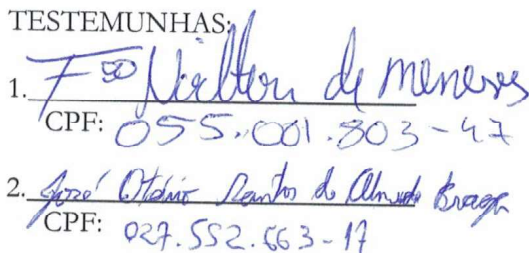 TESTEMUNHAS:
1. Fco Nirlton de Meneses
CPF: 055.001.803-47
2. José Otávio Santos de Almeida Braga
CPF: 027.552.663-17